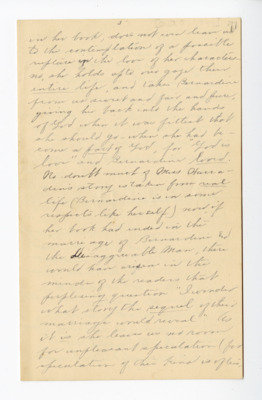 in her book, does not even lead us
to the contemplation of a possible
rupture in the love of her characters
no, she holds up to our gaze their
entire life, and takes Bernardine
from us sweet and fair and pure,
giving her back into the hands
of God when it was fittest that
she should go - when she had be-
come a part of God, for "God is
love" and Bernardine loved.
No doubt much of Miss Harra-
dens story is taken from real
life (Bernardine is in some
respects like herself) now if
her book had ended in the
marriage of Bernardine &
the Disagreeable Man, there
would have arisen in the
minds of the readers that
perplexing question "I wonder
what story the sequel of their
marriage would reveal" As
it is she leaves us no room
for unpleasant speculation (for
speculation of their